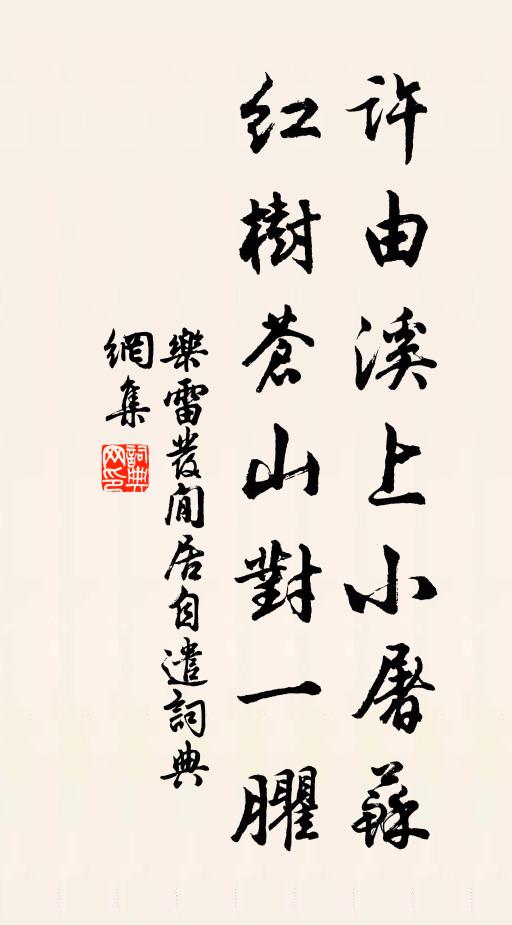 許由溪上小屠蘇
紅樹蒼山對一臞
樂雷發閒居自遣詞典
網集
詞典網印